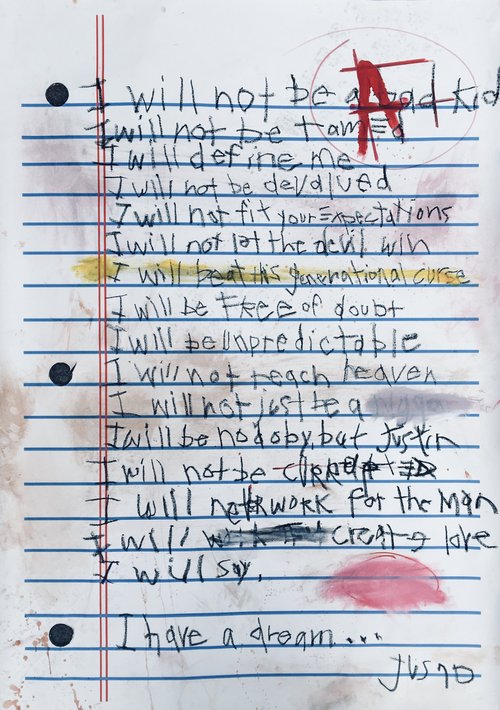 A
I will not be a bad kid
I will not be tamed
I will define me
I will not be devalued
I will not fit your Expectations
I will not let the devil win
I will beat this generational curse
I will be free of doubt
I will be unpredictable
I will not reach heaven
I will not just be a
I will be nodoby, but Justin
I will not be
I will not work for the Man
I will create love
I will say,
I have a dream...
JUSTO